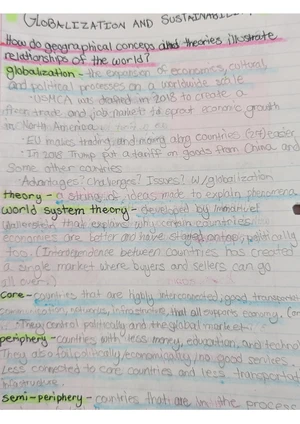 GLOBALIZATION AND SUSTAINABIL
How do geographical concep and theories illustrate
relationships of the world?
globalization - the expansion of economics, cultural
and political processes on a worldwide scale
· USMCA was drafted in 2018 to create a
trade and job market to sprout economic growth
in North America
· EU makes trading and moving along countries (27) easier
· In 2018 Trump put a tariff on goods from China and
Some other countries
Advantages? Challenges? Issues? w/ globalization
theory - a string of ideas made to explain phenomena
world system theory - developed by Immanuel
Wallerstein that explains why certain countries'
economies are better and have stayed politically
too. (Interdependence between countries has created
a single market where buyers and sellers can go
all over)
core - countries that are highly interconnected; good transporta
networks, infrastructure, that all supports economy.
They control politically and the global market.
periphery - countries with less money, education, and techno
They also fall politically/economically, less good services.
Less connected to core countries and less transportat
infrastructure.
semi-periphery - countries that are in the process